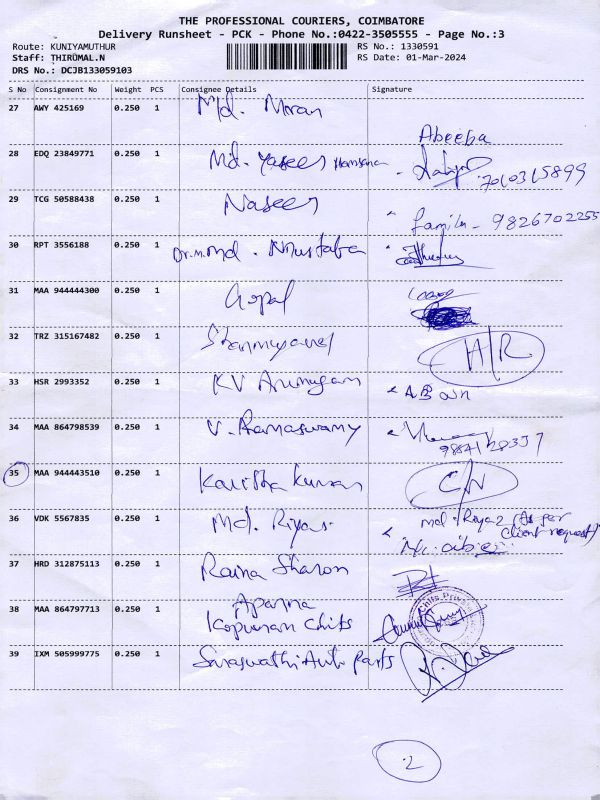 THE PROFESSIONAL COURIERS, COIMBATORE
Delivery Runsheet - PCK - Phone No.:0422-3505555 - Page No.:3
Route: KUNIYAMUTHUR RS No.: 1330591
Staff: THIRUMAL.N RS Date: 01-Mar-2024
DRS No.: DCJB133059103
S No Consignment No Weight PCS Consignee Details Signature
27 AWY 425169 0.250 1 Md. Moran
Abeeba
28 EDQ 23849771 0.250 1 Md. Yaseer
7010315899
29 TCG 50588438 0.250 1 Naseer
9826702255
30 RPT 3556188 0.250 1 Dr.M.Md. Mustafa
31 MAA 944444300 0.250 1 Gopal
32 TRZ 315167482 0.250 1 Shanmugavel
H/R
33 HSR 2993352 0.250 1 KV Arumugam
34 MAA 864798539 0.250 1 V. Ramaswamy
35 MAA 944443510 0.250 1 Kavitha Kumar
C/N
36 VDK 5567835 0.250 1 Md. Riyas
(As per
client request)
37 HRD 312875113 0.250 1 Raina Sharon
38 MAA 864797713 0.250 1 Aparna
Kopuram Chits
39 IXM 505999775 0.250 1 Saraswathi Auto Parts
2